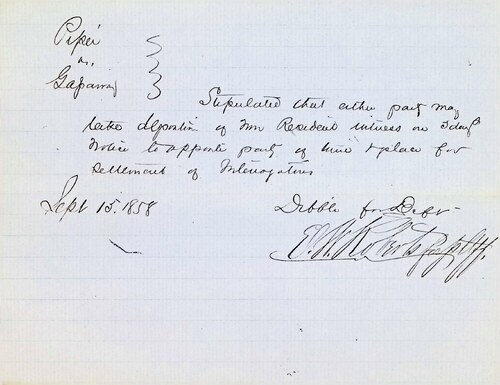 Piper
vs.
Gaparvay
Stipulated that either party may
take deposition of Non Resident witness on 3 days
Notice to opposite party of time & place for
settlement of Interrogatories
Sept 15. 1858
Dibble for Deft
E. W. Roberts for Plff.